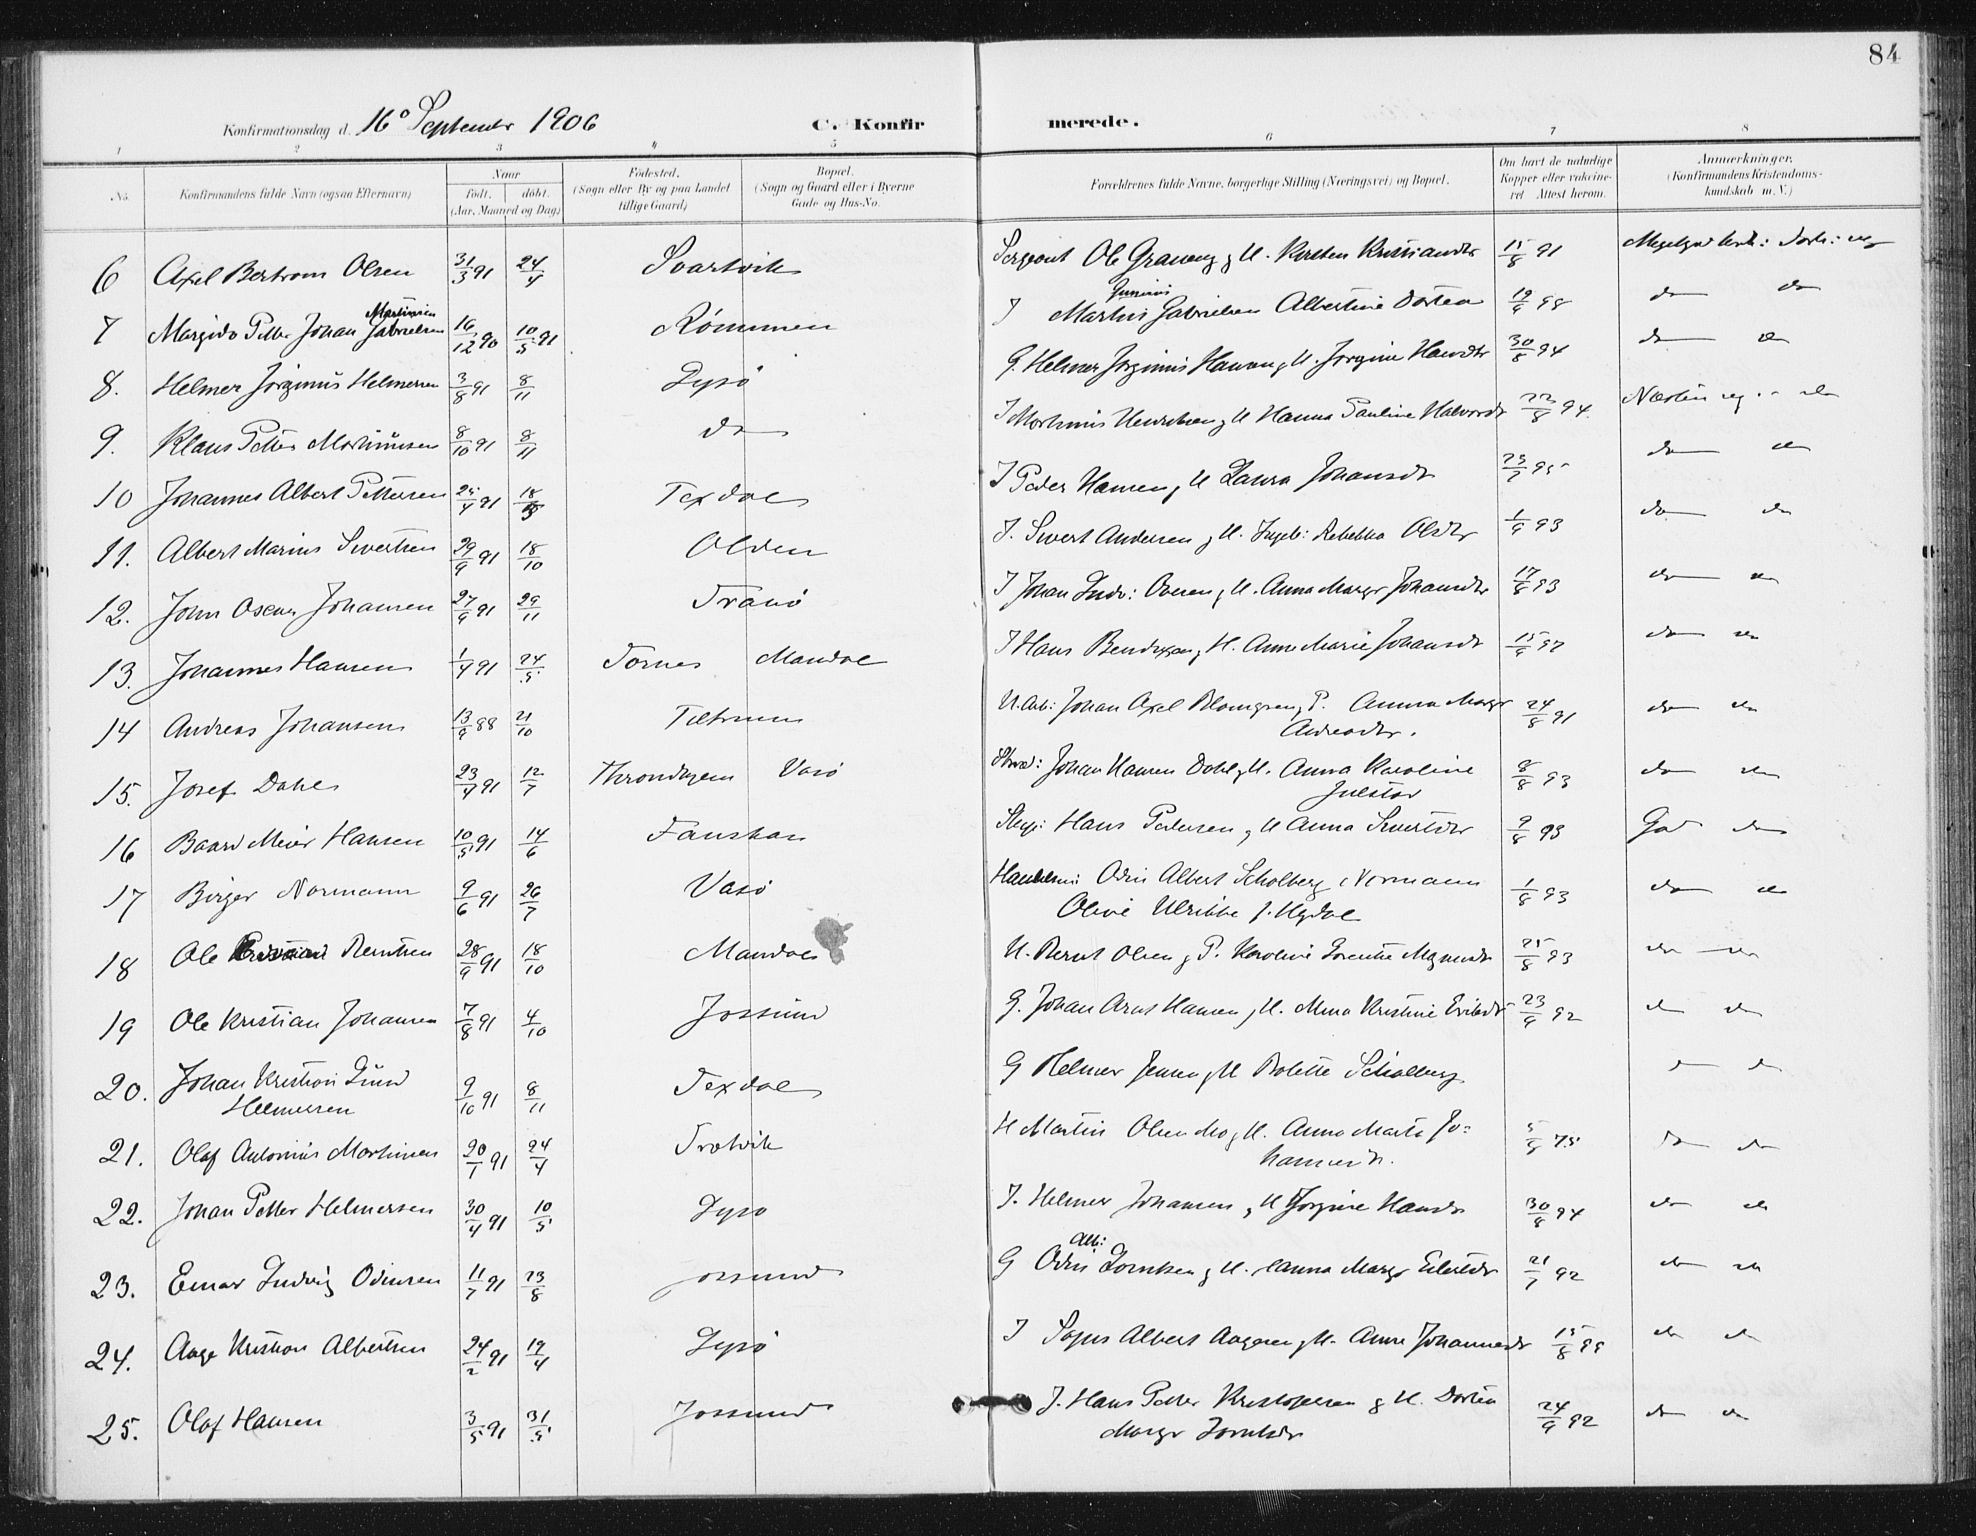 84
Konfirmationsdag d. 16º September 1906 C. Konfirmerede.
1 2 3 4 5 6 7 8
No. Konfirmandens fulde Navn (ogsaa Efternavn) Naar født. døbt. (Aar, Maaned og Dag) Fødested. (Sogn eller By og paa Landet tillige Gaard) Bopæl. (Sogn og Gaard eller i Byerne Gade og Hus-No. Forældrenes fulde Navne, borgerlige Stilling (Næringsvei) og Bopæl. Om havt de naturlige Kopper eller vakcineret Attest herom. Anmærkninger. (Konfirmandens Kristendomskundskab m. V.)
6 Axel Bertrom Olsen 31/3 91 24/4 Svartvik Sergeant Ole Graneng g H. Kirsten Kristiansdtr 15/8 91 Megetgod
7 Margido Petter Johan Martinus Gabrielsen 16/12 90 10/5 91 Rømmen I Martin Gunerius Gabrielsen Albertine Dortea 19/9 98 do do
8. Helmer Jørginus Helmersen 3/8 91 8/11 Lysø G. Helmer Jørginus Hansen g H. Jørgine Hansdtr 30/8 94 do do
9. Klaus Petter Martinusen 8/10 91 8/11 do I Martinus Henriksen g H Hanna Pauline Halvorsdtr 22/8 94. Næsten mg. do
10 Johannes Albert Pettersen 25/4 91 18/5 Texdal I Peder Hansen g H Laura Johansdtr 25/7 95 do do
11. Albert Marius Sivertsen 29/9 91 18/10 Olden I. Sivert Andersen g H. Ingeb: Rebekka Olsdtr 1/9 93 do do
12. John Oscar Johansen 27/9 91 29/11 Tranø I Johan Ludv: Ovesen g H. Anna Margr Johansdtr 17/8 93 do do
13. Johannes Hansen 1/4 91 24/5 Tornes Mandal I Hans Bendixen g H. Anne Marie Johansdtr 15/9 97 do do
14 Andreas Johansen 13/9 88 21/10 Tiltrem U. Arb: Johan Axel Blomgren g P. Anna Margr Andreasdtr. 24/8 91 do do
15. Josef Dahl 23/4 91 12/7 Throndhjem Vasø Skræd: Johan Hansen Dahl g H. Anna Karoline Julestad 8/8 93 do do
16 Baard Meier Hansen 10/5 91 14/6 Fauskan Skyp: Hans Pedersen g H Anna Sivertsdtr 9/8 93 God do
17 Birger Normann 9/6 91 26/7 Vasø Handelsm: Odin Albert Scholberg Normann Olive Ulrikke f. Mydal 1/8 93 do do
18 Ole Kristian Berntsen 28/9 91 18/10 Mandal U. Bernt Olsen g P. Karoline Lorentse Magnusdtr 25/8 93 do do
19 Ole Kristian Johansen 7/8 91 4/10 Jossund G. Johan Arnt Hansen g H. Anna Kristine Eriksdtr 23/9 92 do do
20. Johan Kristian Lund Helmersen 9/10 91 8/11 Texdal G Helmer Jensen g H Bolette Scholberg do do
21. Olaf Antonius Martinsen 20/1 91 24/4 Tratvik H Martin Olsen Mo g H. Anna Marta Johannesdtr. 5/9 75 do do
22. Johan Petter Helmersen 30/4 91 10/5 Lysø I. Helmer Johansen g H Jørgine Hansdtr 30/8 94 do do
23. Einar Ludvig Odinsen 11/7 91 23/8 Jossund G Odin Alb: Lorntsen g H. Hanna Margr Eilertsdtr 21/7 92 do do
24. Aage Kristian Albertsen 24/2 91 19/4 Lysø I Sofus Albert Aagesen g H. Anne Johannesdtr 15/8 99 do do
25. Olaf Hansen 3/5 91 31/5 Jossund I. Hans Petter Kristofersen g H. Dortea Margr Lorntsdtr 24/9 92 do do